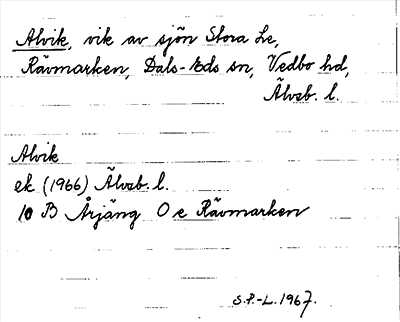 Alvik, vik av sjön Stora Le,
Rävmarken, Dals-Eds sn, Vedbo hd,
Älvsb. l.
Alvik
ek (1966) Älvsb. l.
10 B Årjäng O e Rävmarken
S.P.-L. 1967.